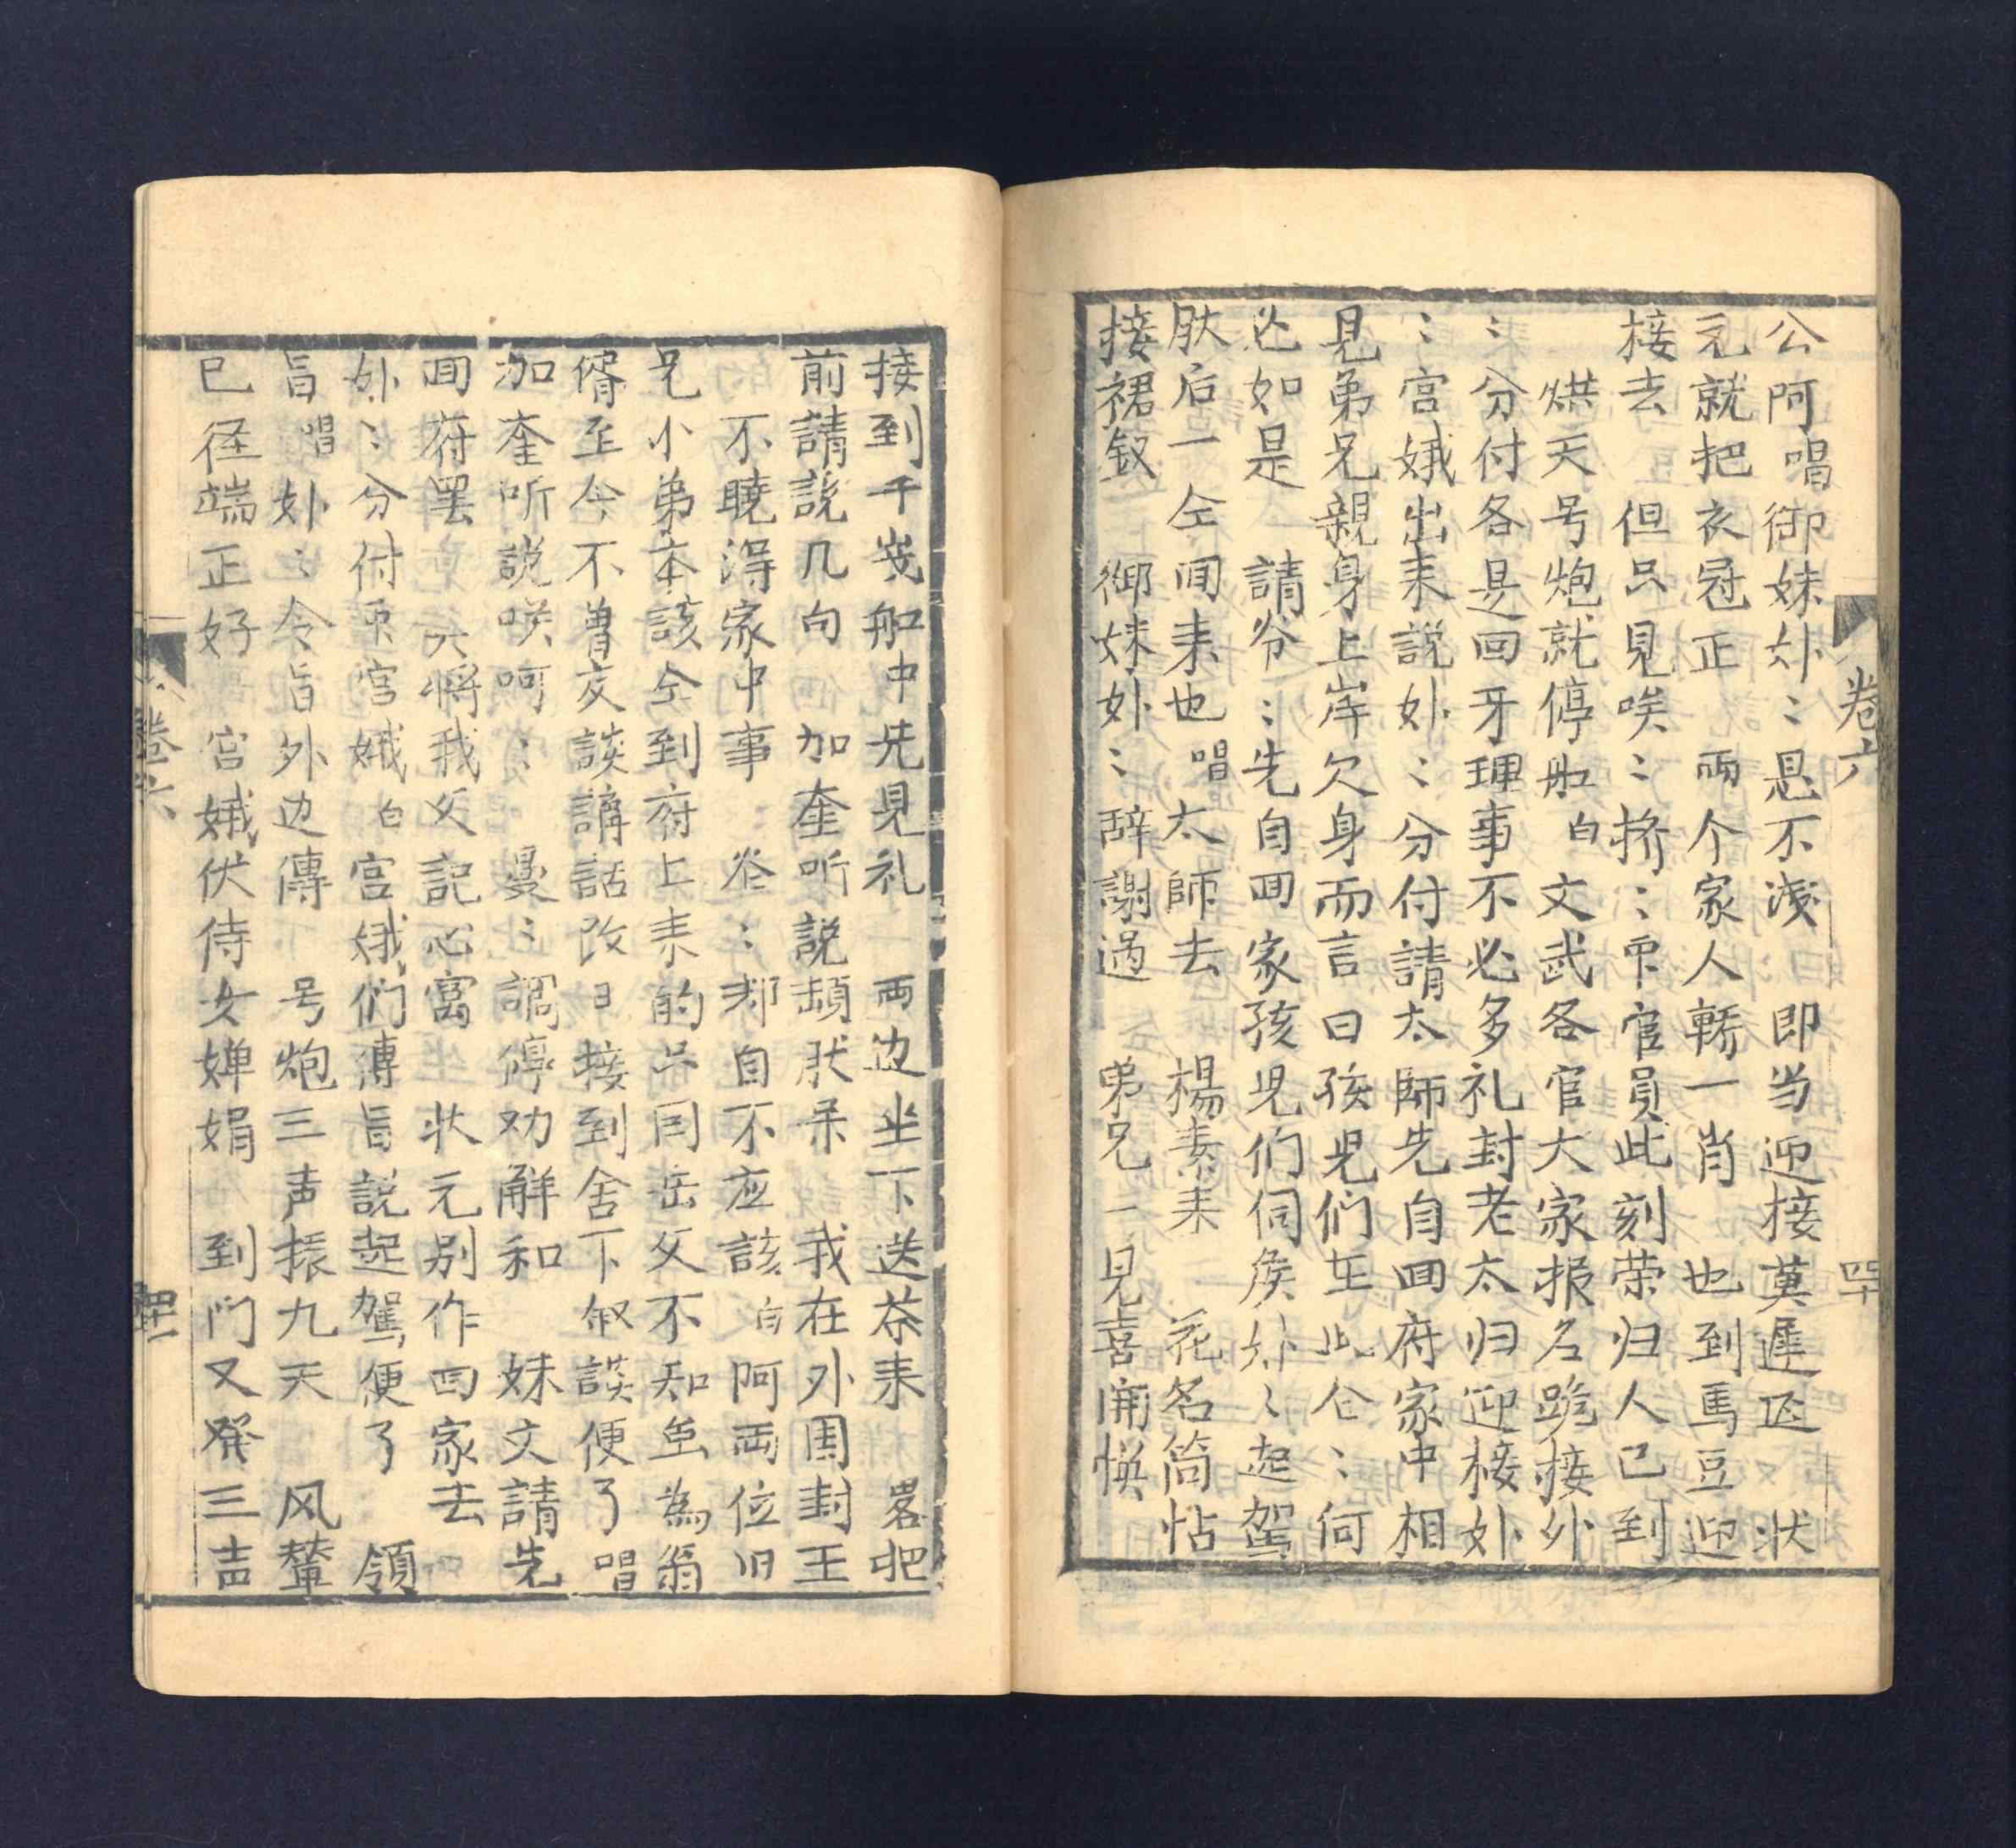 卷六
四十
公阿唱御妹妙〻恩不淺　即当迎接莫遲延　状
元就把衣冠正　両个家人轎一肖　也到馬豆迎
接去　但只見唉〻挤〻帀官員此刻荣归人已到
烘天号炮就停船白文武各官大家报名跪接外
〻分付各是回牙理事不必多礼封老太归迎接妙
〻宫娥出耒説妙〻分付請太師先自囬府家中相
見弟兄親身上岸欠身而言曰孩児们在此仝〻何
必如是　請爷〻先自囬家孩児们伺矦妙〻起驾
肰后一仝囬耒也唱太師去　楊素耒　花名筒帖
接裙釵　御妹妙〻辞謝过　弟兄一見喜開怀
接到千歲船中先見礼　両边坐下送茶耒　畧把
前請説几句　加奎听説頻肰呆　我在外国封王
不曉淂家中事　爷〻却自不应該白阿両位旧
兄小弟本該仝到府上耒的只囙岳父不知至為翁
僭至今不曾交談講話改日接到舍下叙談便了唱
加奎听説咲呵〻　曼〻調停劝觧和　妹文請先
囬府罢　笑將我父記心窩　状元别作囬家去
妙〻分付帀宫娥白宫娥们傳旨説起駕便了　領
旨唱妙〻令旨外边傳　号炮三声振九天　风輦
已径端正好　宫娥伏侍女婵娟　到门又癸三声
卷六
四十一